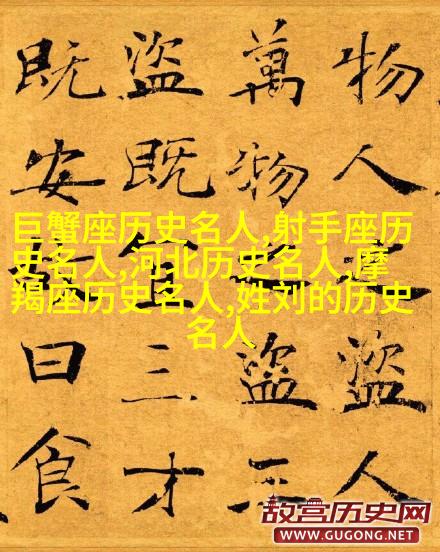 物人之盜人
萬物盜三
盜既宜三才
既安曰食
巨蟹座历史名人,射手座历
史名人,河北历史名人,摩
羯座历史名人,姓刘的历史
名人
故宫历史网
WWW.GUGONG.NET